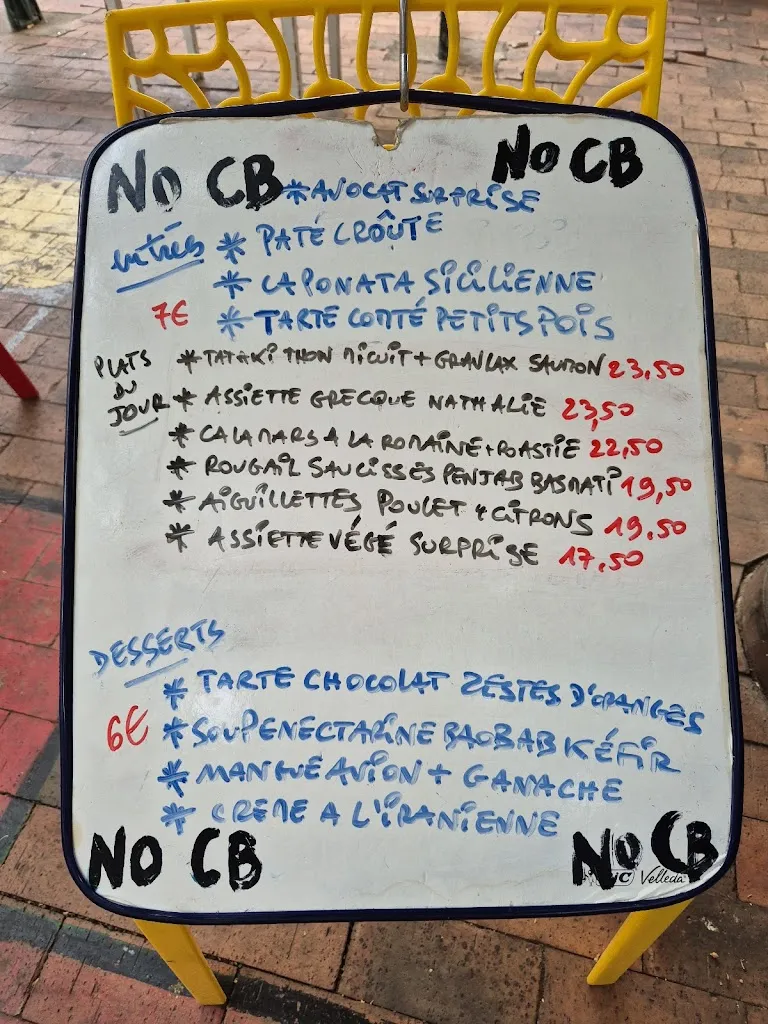 NO CB
NO CB
* AVOCAT SURPRISE
entrées * PATÉ CROÛTE
* CAPONATA SICILIENNE
7€ * TARTE COMTÉ PETITS POIS
PLATS DU JOUR
* TATAKI THON MICUIT + GRAVLAX SAUMON 23,50
* ASSIETTE GRECQUE NATHALIE 23,50
* CALAMARS A LA ROMAINE + ROASTIE 22,50
* ROUGAIL SAUCISSES PENJAB BASMATI 19,50
* AIGUILLETTES POULET 4 CITRONS 19,50
* ASSIETTE VÉGÉ SURPRISE 17,50
DESSERTS
* TARTE CHOCOLAT ZESTES D'ORANGES
6€ * SOUPE NECTARINE BAOBAB KÉFIR
* MANGUE AVION + GANACHE
* CREME A L'IRANIENNE
NO CB
NO CB
Velleda